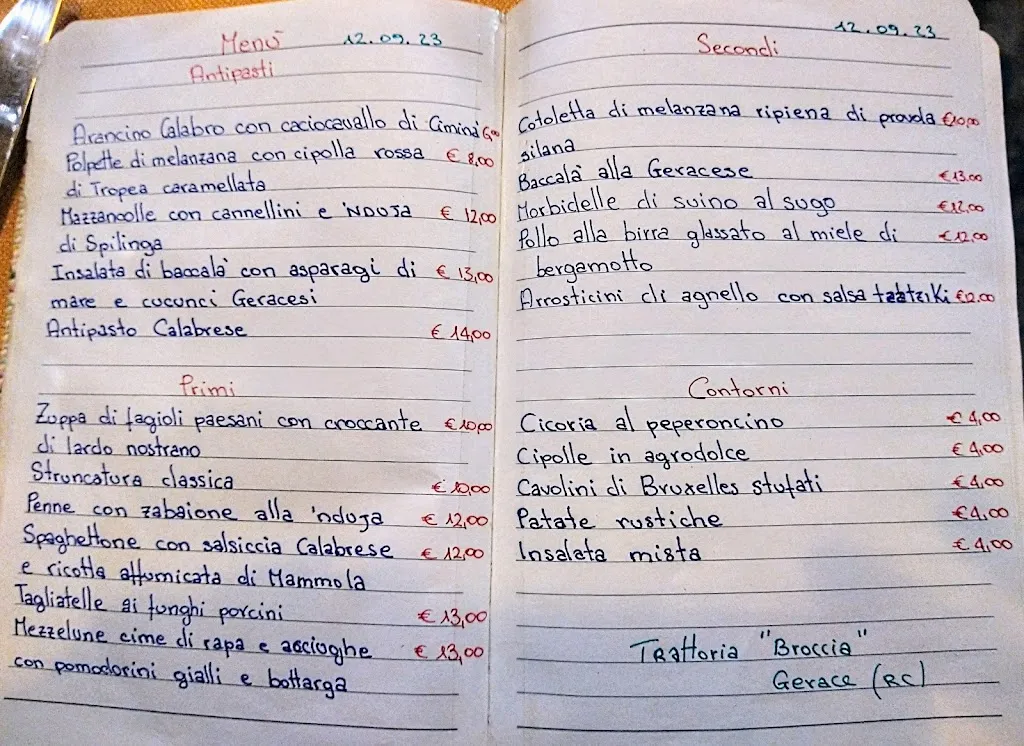 Menù 12.09.23
Antipasti
Arancino Calabro con caciocavallo di Ciminà 6,00
Polpette di melanzana con cipolla rossa € 8,00
di Tropea caramellata
Mazzancolle con cannellini e 'NDUJA € 12,00
di Spilinga
Insalata di baccalà con asparagi di € 13,00
mare e cucunci Geracesi
Antipasto Calabrese € 14,00
Primi
Zuppa di fagioli paesani con croccante € 10,00
di lardo nostrano
Struncatura classica € 10,00
Penne con zabaione alla 'nduja € 12,00
Spaghettone con salsiccia Calabrese € 12,00
e ricotta affumicata di Mammola
Tagliatelle ai funghi porcini € 13,00
Mezzelune cime di rapa e acciughe € 13,00
con pomodorini gialli e bottarga
12.09.23
Secondi
Cotoletta di melanzana ripiena di provola €10,00
silana
Baccalà alla Geracese €13.00
Morbidelle di suino al sugo €12,00
Pollo alla birra glassato al miele di €12,00
bergamotto
Arrosticini di agnello con salsa tzatziki €12.00
Contorni
Cicoria al peperoncino € 4,00
Cipolle in agrodolce € 4,00
Cavolini di Bruxelles stufati € 4,00
Patate rustiche €4,00
Insalata mista € 4,00
Trattoria "Broccia"
Gerace (RC)